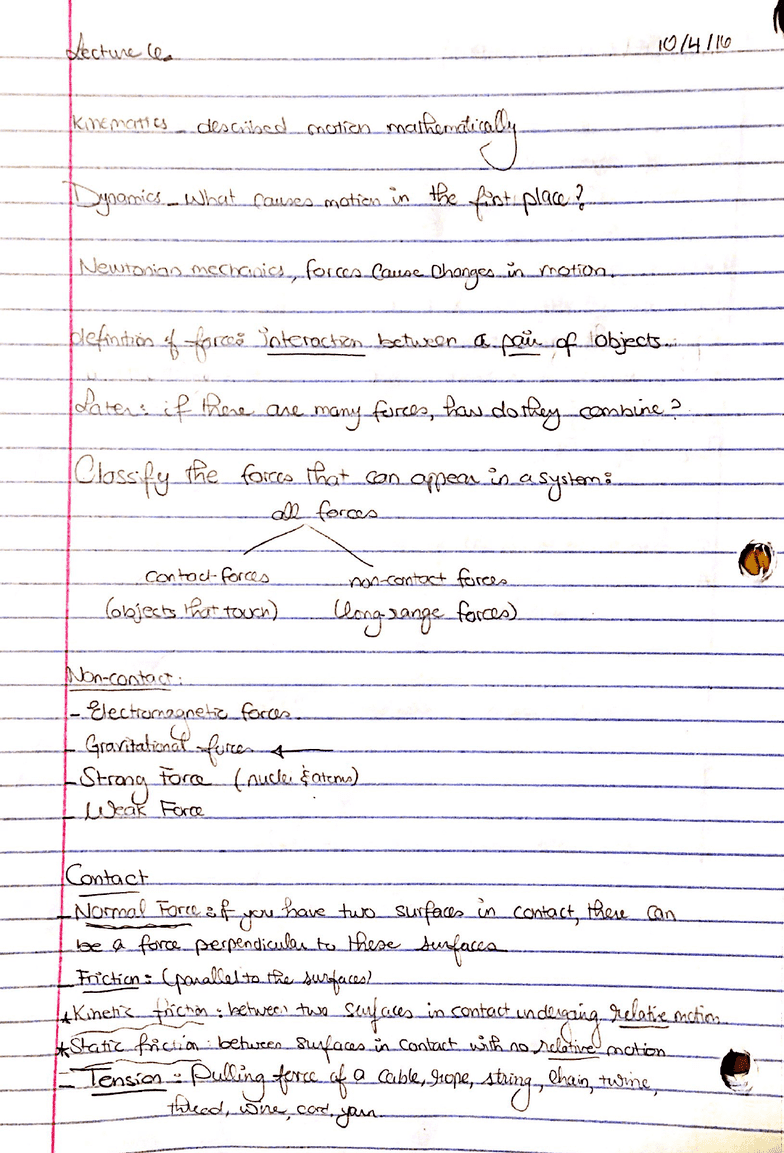 Lecture 6.
10/4/16
Kinematics - described motion mathematically
Dynamics - What causes motion in the first place?
Newtonian mechanics, forces cause changes in motion.
definition of force: interaction between a pair of objects.
Later: if there are many forces, how do they combine?
Classify the forces that can appear in a system:
all forces
contact-forces non-contact forces
(objects that touch) (long-range forces)
Non-contact:
- Electromagnetic forces.
- Gravitational force ←
- Strong Force (nuclei & atoms)
- Weak Force
Contact
- Normal Force: if you have two surfaces in contact, there can
be a force perpendicular to these surfaces
- Friction: (parallel to the surfaces)
* Kinetic friction: between two surfaces in contact undergoing relative motion.
* Static friction: between surfaces in contact with no relative motion
- Tension: Pulling force of a cable, rope, string, chain, twine,
thread, wire, cord, yarn.